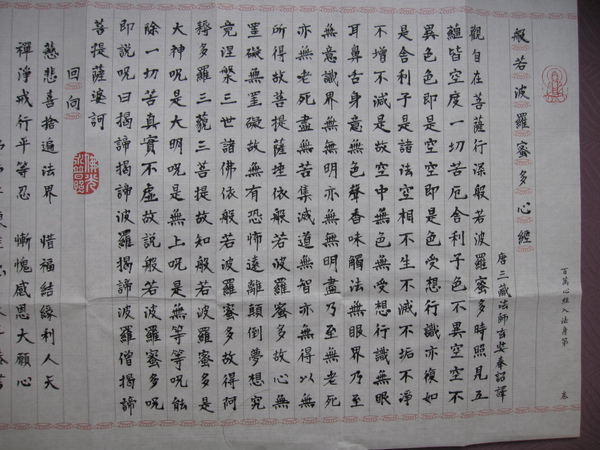 百萬心經入法身第 卷
般若波羅蜜多心經
唐三藏法師玄奘奉詔譯
觀自在菩薩行深般若波羅蜜多時照見五
蘊皆空度一切苦厄舍利子色不異空空不
異色色即是空空即是色受想行識亦復如
是舍利子是諸法空相不生不滅不垢不淨
不增不減是故空中無色無受想行識無眼
耳鼻舌身意無色聲香味觸法無眼界乃至
無意識界無無明亦無無明盡乃至無老死
亦無老死盡無苦集滅道無智亦無得以無
所得故菩提薩埵依般若波羅蜜多故心無
罣礙無罣礙故無有恐怖遠離顛倒夢想究
竟涅槃三世諸佛依般若波羅蜜多故得阿
耨多羅三藐三菩提故知般若波羅蜜多是
大神呪是大明呪是無上呪是無等等呪能
除一切苦真實不虛故說般若波羅蜜多呪
即說呪曰揭諦揭諦波羅揭諦波羅僧揭諦
菩提薩婆訶
回向
慈悲喜捨遍法界 惜福結緣利人天
禪淨戒行平等忍 慚愧感恩大願心